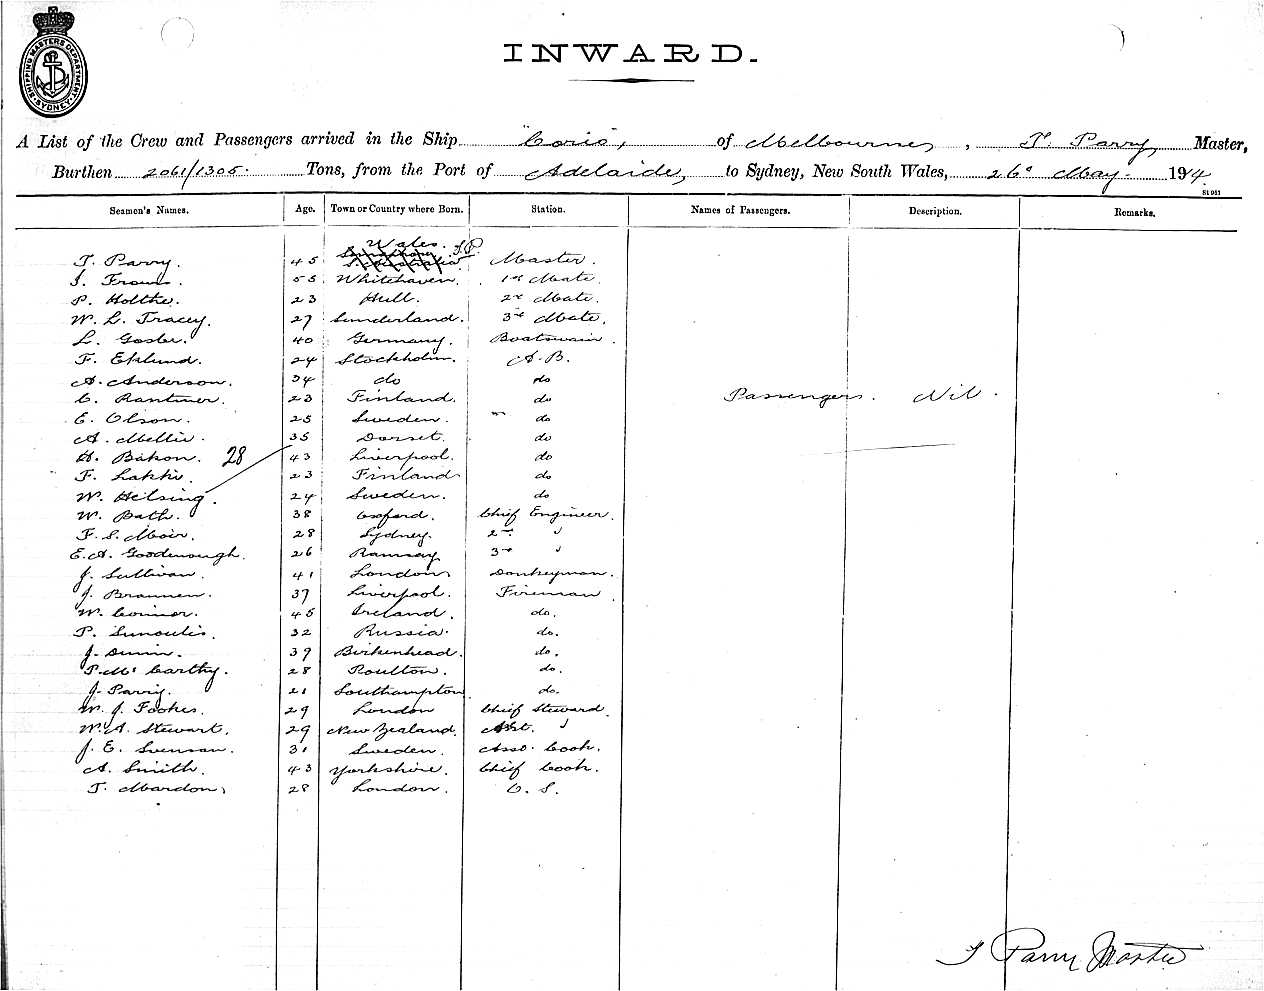 SHIPPING MASTERS DEPARTMENT SYDNEY
INWARD.
A List of the Crew and Passengers arrived in the Ship "Coris", of Melbourne, T. Parry, Master,
Burthen 2061/1305. Tons, from the Port of Adelaide, to Sydney, New South Wales, 26° May. 1914
Seamen's Names. Age. Town or Country where Born. Station. Names of Passengers. Description. Remarks.
Wales. T.P.
T. Parry. 45 Master.
55 Whitehaven. 1st Mate.
P. Holthe. 23 Hull. 2nd Mate.
W. L. Tracey. 27 Sunderland. 3rd Mate.
L. 40 Germany. Boatswain.
F. Eklund. 24 Stockholm. A. B.
A. Anderson. 34 do do
C. 23 Finland. do Passengers. Nil.
E. Olson. 25 Sweden. " do
A. 35 Dorset. do
H. 28 43 Liverpool. do
F. 23 Finland do
W. Helsing. 24 Sweden. do
W. Bath. 38 Oxford. Chief Engineer.
F. S. Moir. 28 Sydney. 2nd "
E. A. Goodenough. 26 Ramsay 3rd "
J. Sullivan. 41 London Donkeyman.
J. Brannen. 37 Liverpool. Fireman
W. Connor. 45 Ireland. do.
P. 32 Russia. do.
J. Dunn. 39 Birkenhead. do.
P. McCarthy. 28 Poulton. do.
J. Parry. 21 Southampton do.
W. J. 29 London Chief Steward.
W. A. Stewart. 29 New Zealand. Asst. "
J. E. Svenson. 31 Sweden. Asso. Cook.
A. Smith. 43 Yorkshire. Chief Cook.
T. Mardon, 28 London. O. S.
T Parry Master